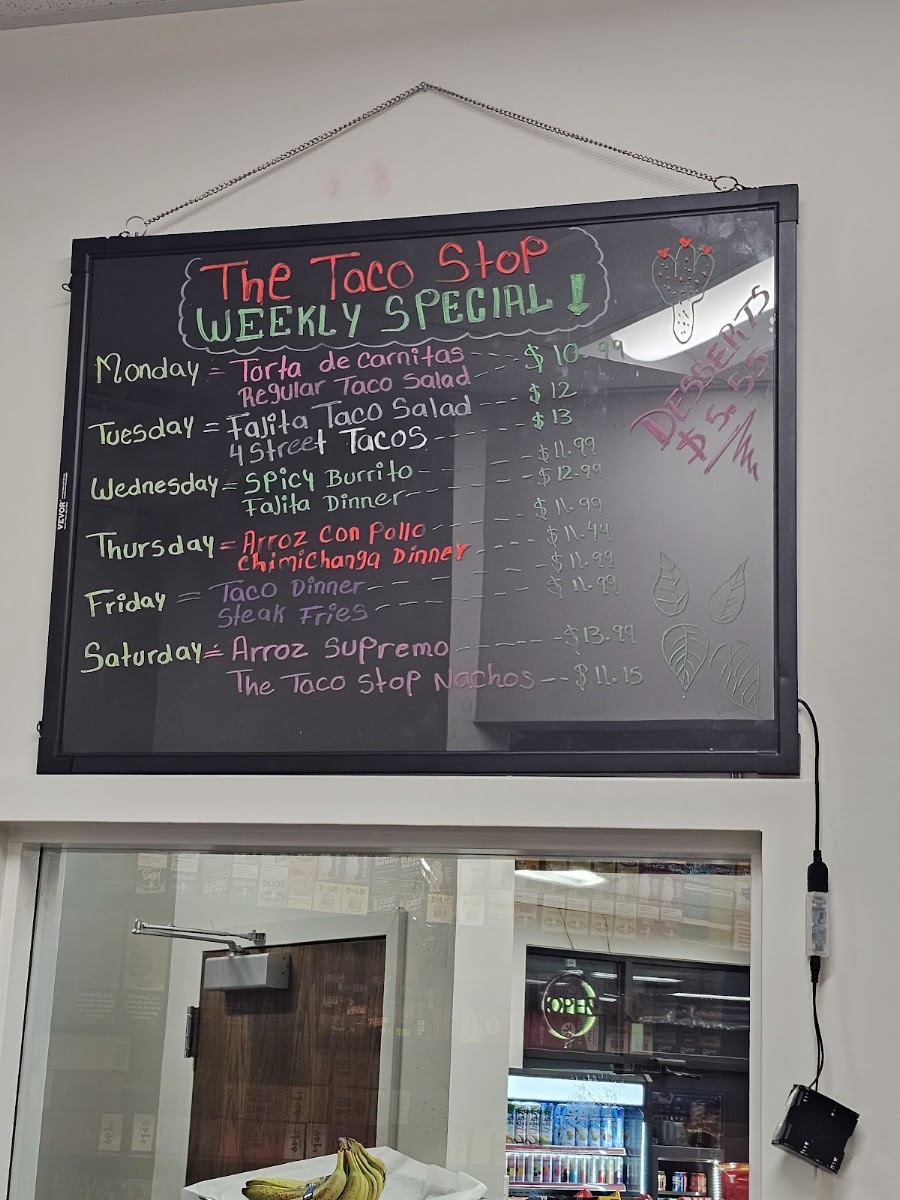 The Taco Stop
WEEKLY SPECIAL
Monday = Torta de Carnitas ---- $10.99
Regular Taco Salad ---- $12
Tuesday = Fajita Taco Salad ---- $13
4 Street Tacos ---- $11.99
Wednesday = Spicy Burrito ---- $12.99
Fajita Dinner ---- $11.99
Thursday = Arroz con Pollo ---- $11.44
Chimichanga Dinner ---- $11.99
Friday = Taco Dinner ---- $11.99
Steak Fries ----
Saturday = Arroz Supremo ---- $13.99
The Taco Stop Nachos -- $11.15
DESSERTS
$5.55
VEVOR
OPEN